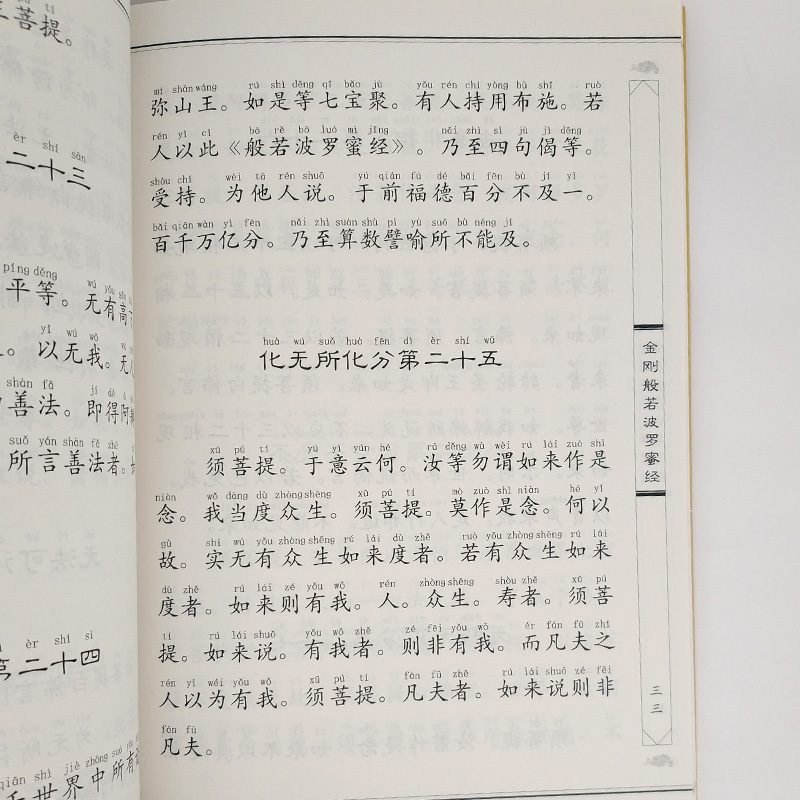 sà pú tí
菩提。
èr shí sān
二十三
píng děng wú yǒu
平等。无有高
yǐ wú wǒ
以无我。无
shàn fǎ jí dé
善法。即得阿
suǒ yán shàn fǎ zhě
所言善法者。
èr shí sì
第二十四
qiān shì jiè zhōng suǒ
千世界中所有
mí shān wáng rú shì děng qī bǎo jù yǒu rén chí yòng bù shī ruò
弥山王。如是等七宝聚。有人持用布施。若
rén yǐ cǐ bō rě bō luó mì jīng nǎi zhì sì jù jì děng
人以此《般若波罗蜜经》。乃至四句偈等。
shòu chí wèi tā rén shuō yú qián fú dé bǎi fēn bù jí yī
受持。为他人说。于前福德百分不及一。
bǎi qiān wàn yì fēn nǎi zhì suàn shù pì yù suǒ bù néng jí
百千万亿分。乃至算数譬喻所不能及。
huà wú suǒ huà fēn dì èr shí wǔ
化无所化分第二十五
xū pú tí yú yì yún hé rǔ děng wù wèi rú lái zuò shì
须菩提。于意云何。汝等勿谓如来作是
niàn wǒ dāng dù zhòng shēng xū pú tí mò zuò shì niàn hé yǐ
念。我当度众生。须菩提。莫作是念。何以
gù shí wú yǒu zhòng shēng rú lái dù zhě ruò yǒu zhòng shēng rú lái
故。实无有众生如来度者。若有众生如来
dù zhě rú lái zé yǒu wǒ rén zhòng shēng shòu zhě xū pú
度者。如来则有我。人。众生。寿者。须菩
tí rú lái shuō yǒu wǒ zhě zé fēi yǒu wǒ ér fán fū zhī
提。如来说。有我者。则非有我。而凡夫之
rén yǐ wéi yǒu wǒ xū pú tí fán fū zhě rú lái shuō zé fēi
人以为有我。须菩提。凡夫者。如来说则非
fán fū
凡夫。
金刚般若波罗蜜经
三三